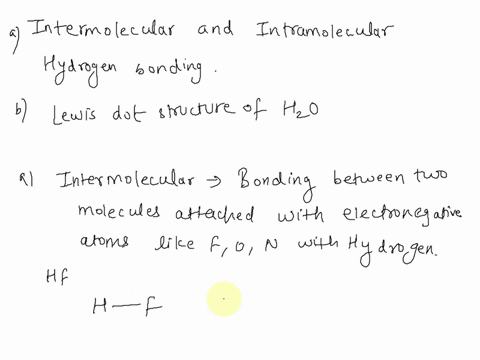 a) Intermolecular and Intramolecular
Hydrogen bonding.
b) Lewis dot structure of H₂O
a) Intermolecular → Bonding between two
molecules attached with electronegative
atoms like F, O, N with Hydrogen.
Hf
H—F